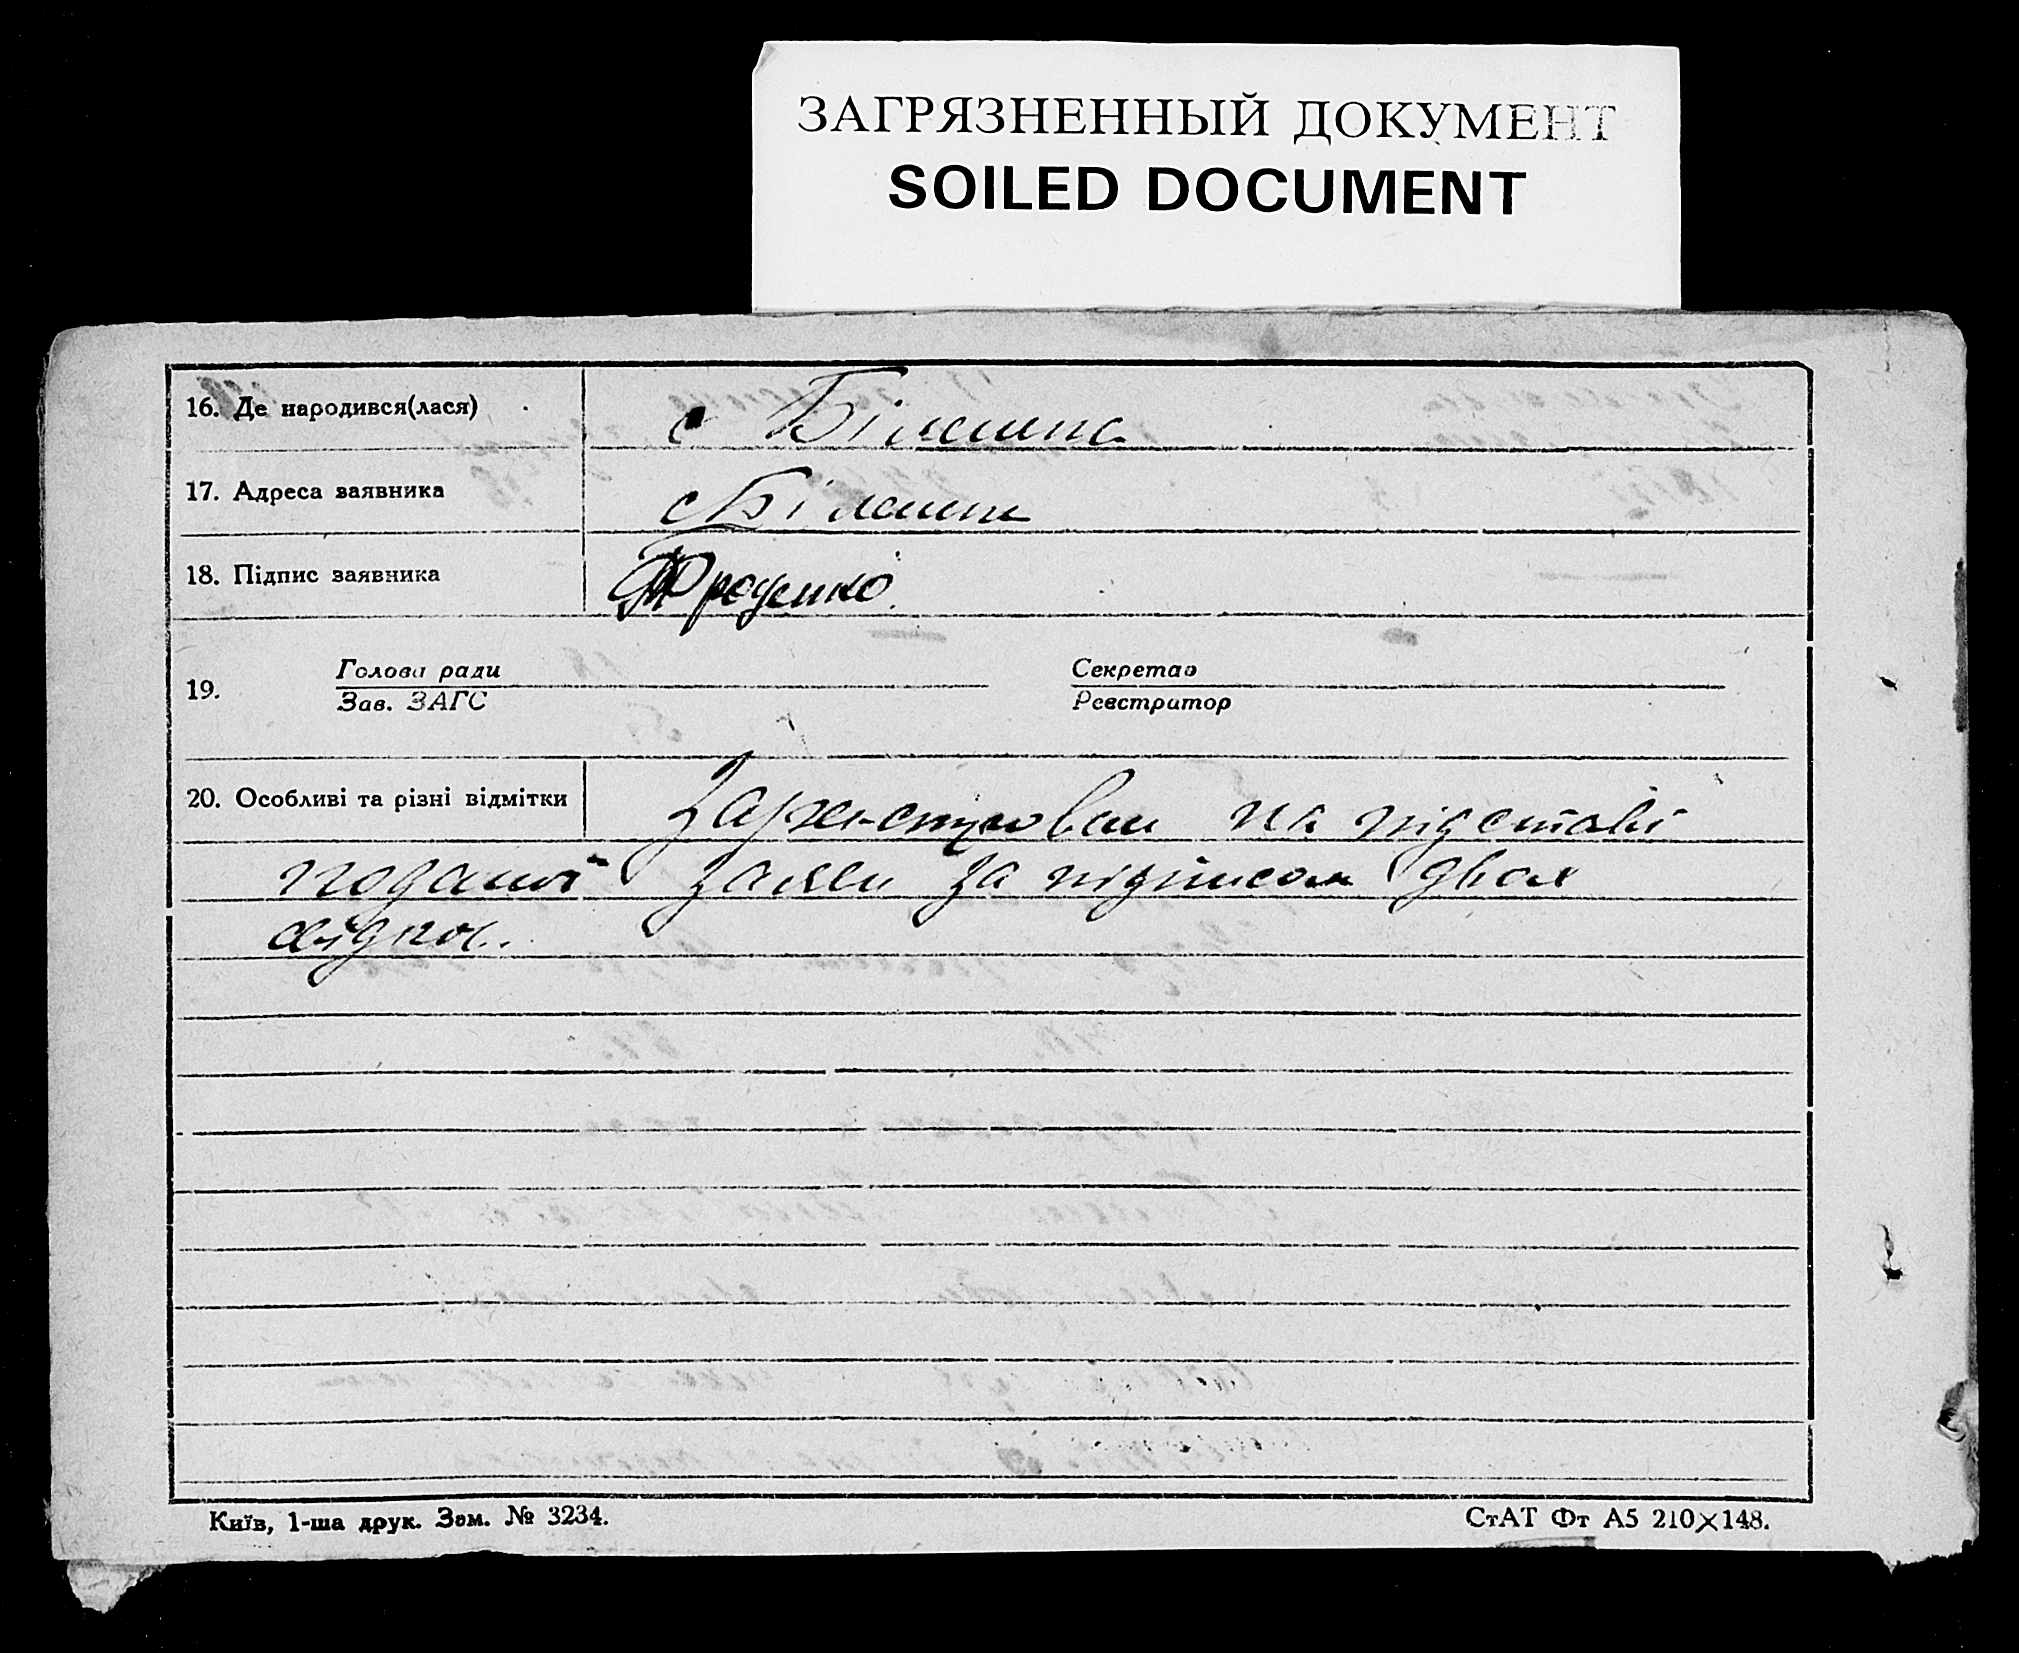 ЗАГРЯЗНЕННЫЙ ДОКУМЕНТ
SOILED DOCUMENT
16. Де народився(лася)
с
17. Адреса заявника
с
18. Підпис заявника
19.
Голова ради
Зав. ЗАГС
Секретар
Реєстратор
20. Особливі та різні відмітки
на підставі
поданої заяви за підписом двох
свідків.
Київ, 1-ша друк. Зам. № 3234.
СтАТ Фт А5 210×148.